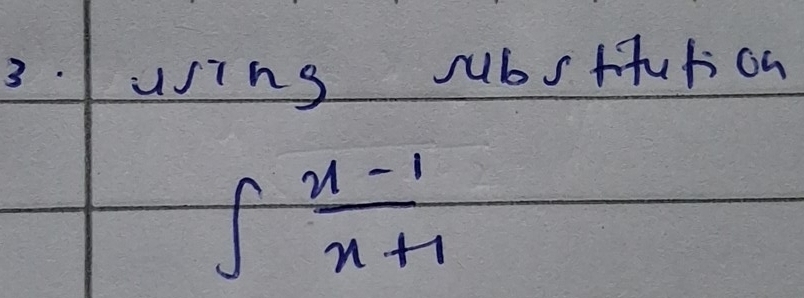 3. using substitution
∫ x - 1 / x + 1